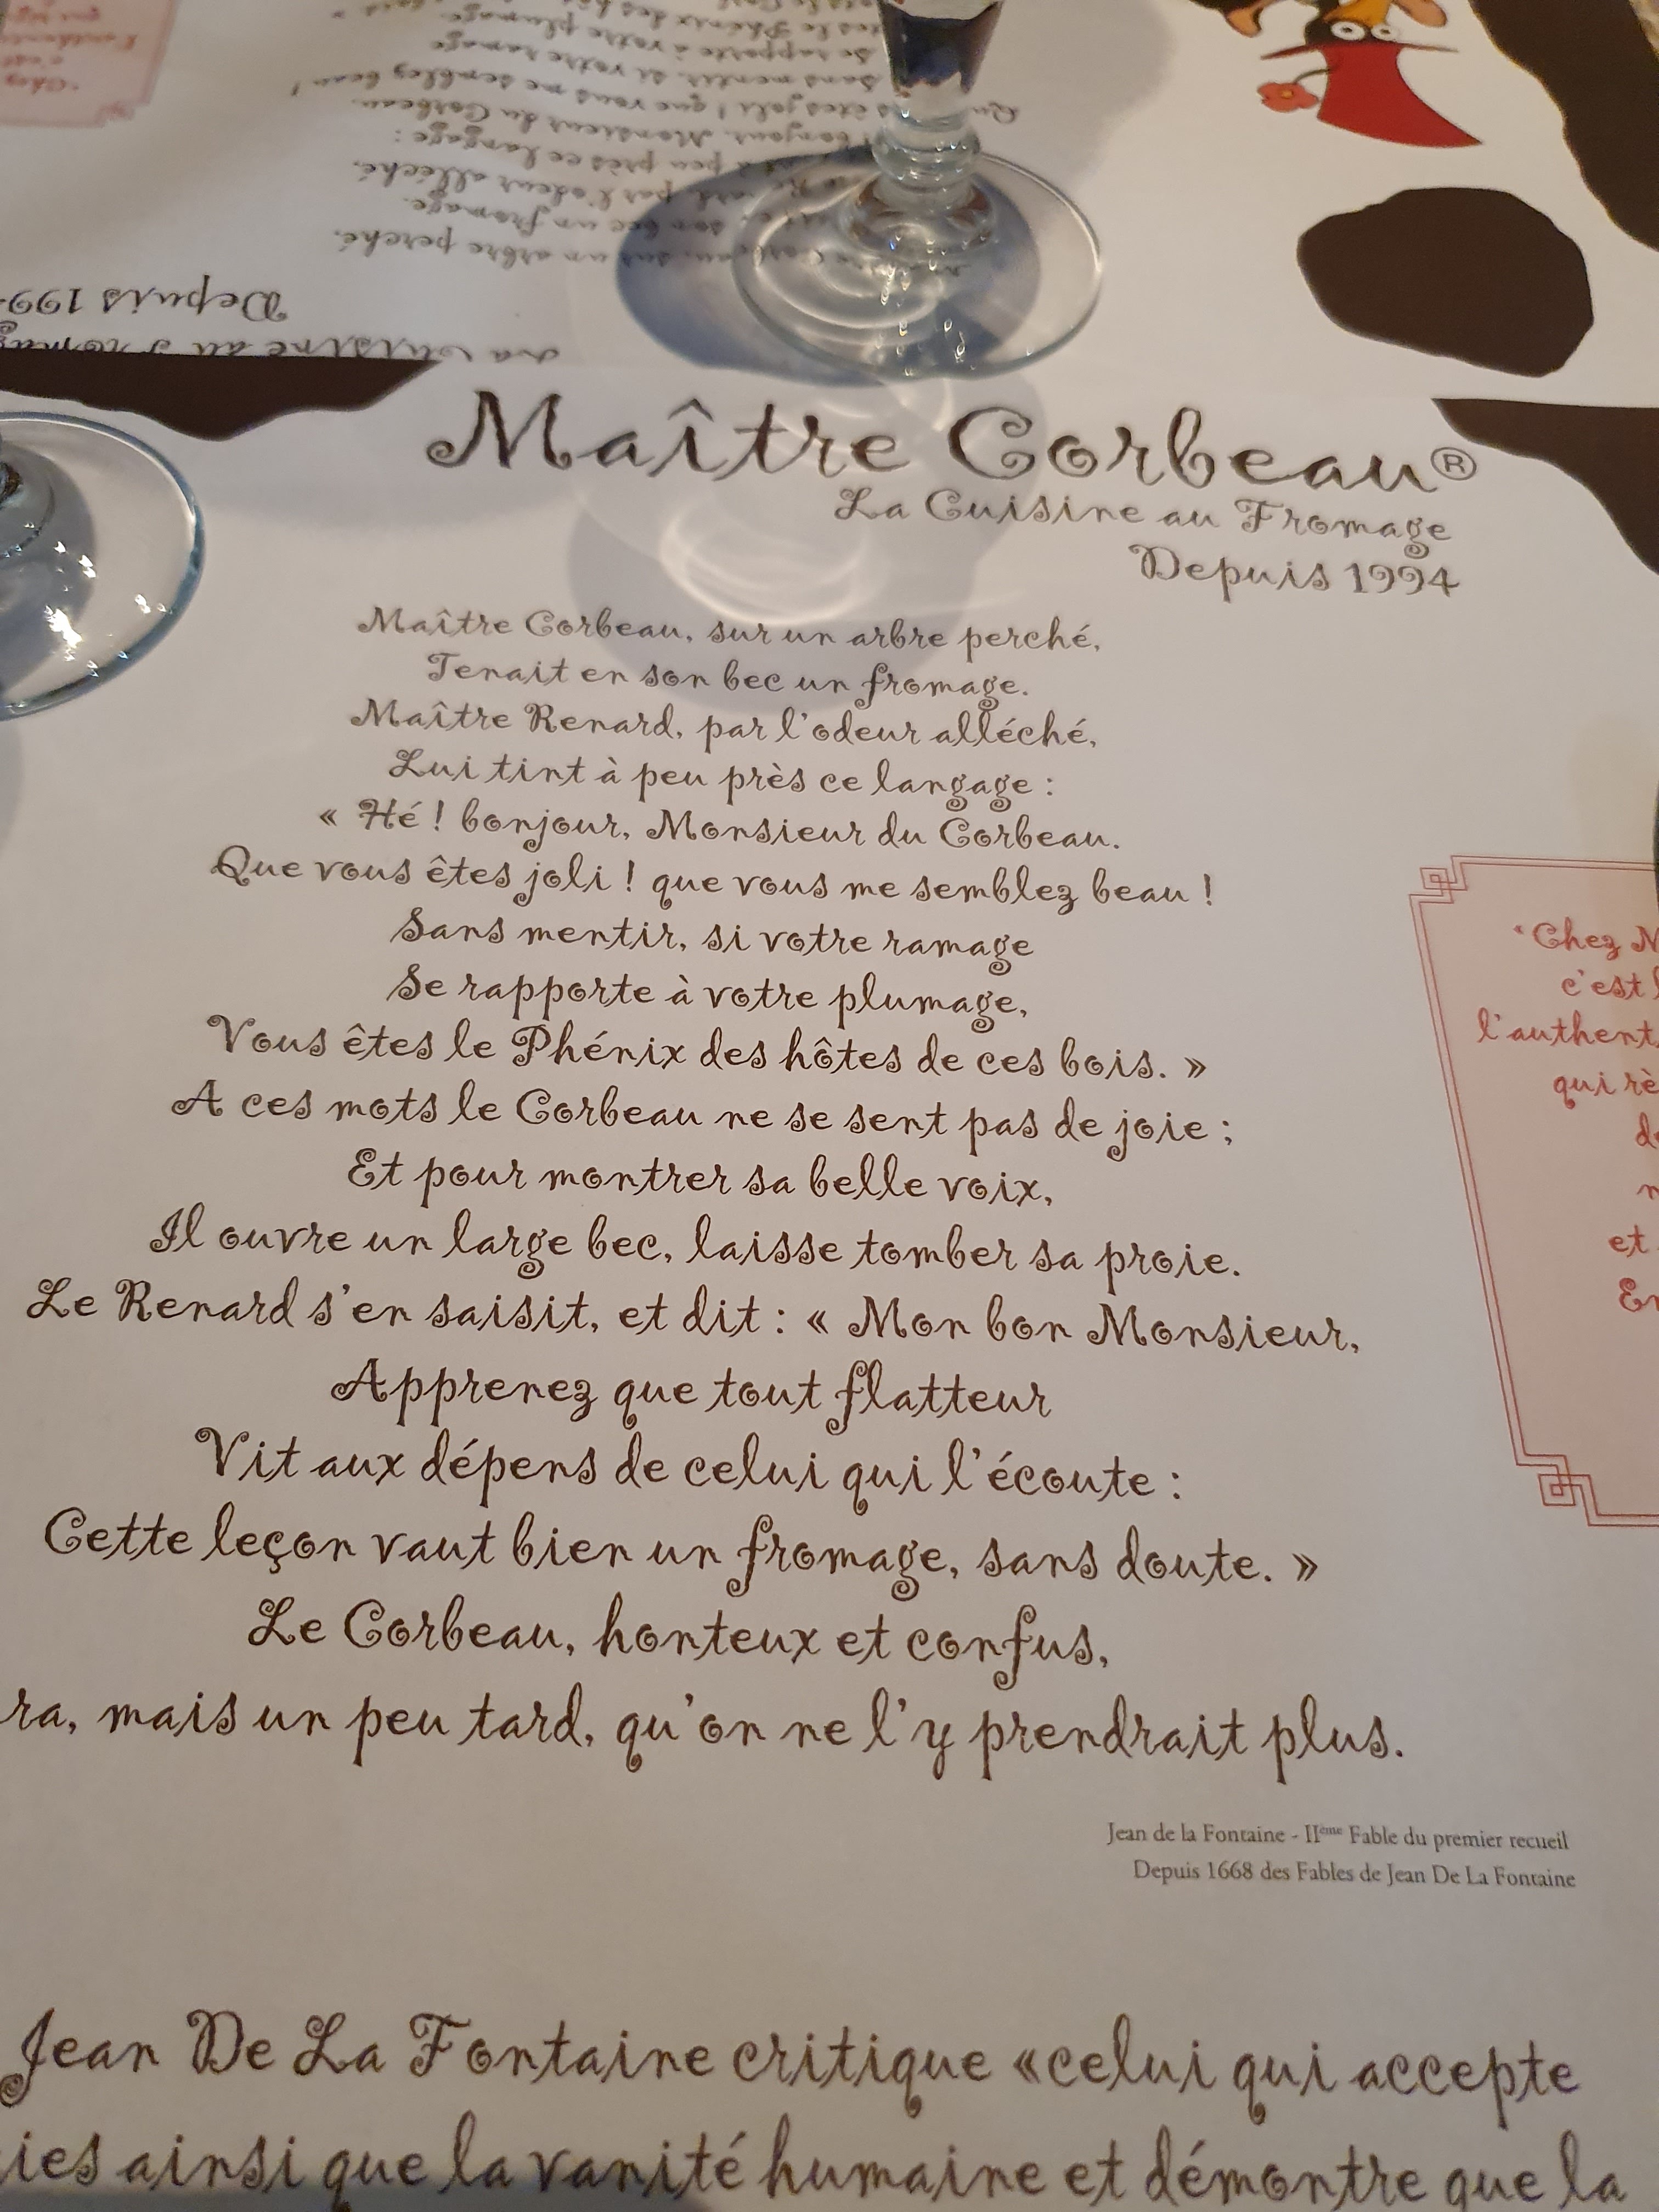 Depuis 199
Maître Corbeau®
La Cuisine au Fromage
Depuis 1994
Maître Corbeau, sur un arbre perché,
Tenait en son bec un fromage.
Maître Renard, par l'odeur alléché,
Lui tint à peu près ce langage :
« Hé ! bonjour, Monsieur du Corbeau.
Que vous êtes joli ! que vous me semblez beau !
Sans mentir, si votre ramage
Se rapporte à votre plumage,
Vous êtes le Phénix des hôtes de ces bois. »
A ces mots le Corbeau ne se sent pas de joie ;
Et pour montrer sa belle voix,
Il ouvre un large bec, laisse tomber sa proie.
Le Renard s'en saisit, et dit : « Mon bon Monsieur,
Apprenez que tout flatteur
Vit aux dépens de celui qui l'écoute :
Cette leçon vaut bien un fromage, sans doute. »
Le Corbeau, honteux et confus,
ra, mais un peu tard, qu'on ne l'y prendrait plus.
Jean de la Fontaine - IIème Fable du premier recueil
Depuis 1668 des Fables de Jean De La Fontaine
Jean De La Fontaine critique «celui qui accepte
ies ainsi que la vanité humaine et démontre que la
"Chez N
c'est l
l'authent
qui rè
de
et
En